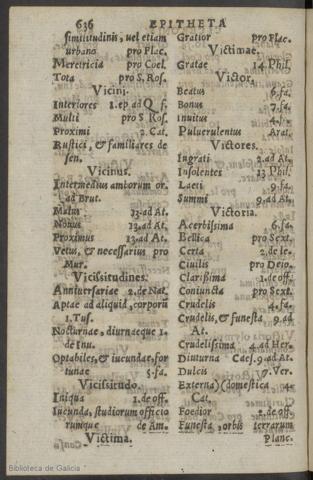 636 EPITHETA
similitudinis, uel etiam
urbano pro Plac.
Meretricia pro Coel.
Tota pro S. Ros.
Vicini.
Interiores 1. ep ad Q. f.
Multi pro S Ros.
Proximi 2. Cat.
Rustici, & familiares de
sen,
Vicinus.
Intermedius amborum or.
ad Brut.
Malus 13. ad At.
Nonus 13. ad At.
Proximus 13. ad At.
Vetus, & necessarius pro
Mur.
Vicissitudines.
Anniuersariae 2. de Nat.
Aptae ad aliquid, corporũ
1. Tus.
Nocturnae, diurnaeque 1.
de Inu.
Optabiles, & iucundae, for
tunae 5. fa.
Vicissitudo.
Iniqua 1. de off.
Iucunda, studiorum officio
rumque de Am.
Victima.
Gratior pro Plac.
Victimae.
Gratae 14. Phil.
Victor.
Beatus 6. fa.
Bonus 7. fa.
Inuitus 4.
Puluerulentus Arat.
Victores.
Ingrati 2. ad At.
Insolentes 13 Phil.
Laeti 9. fa.
Summi 9. ad At.
Victoria.
Acerbissima 6. fa.
Bellica pro Sext.
Certa 2. de le.
Ciuilis pro Deio.
Clarissima 1. de off.
Coniuncta pro Sext.
Crudelis 4. fa.
Crudelis, & funesta 9. ad
At.
Crudelissima 4. ad Her.
Diuturna Caes. 9. ad At.
Dulcis 7. Ver.
Externa) (domestica 4.
Cat.
Foedior 2. de off.
Funesta, orbis terrarum
Planc.
Biblioteca de Galicia